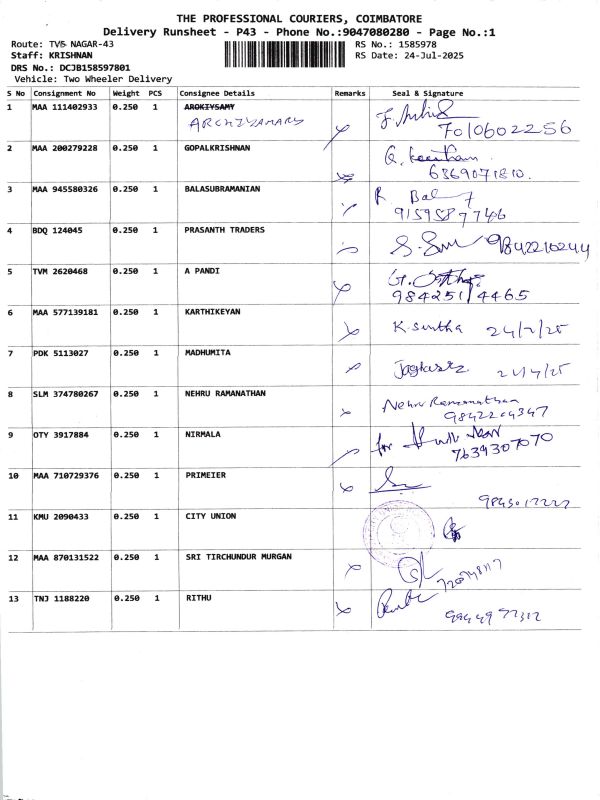 THE PROFESSIONAL COURIERS, COIMBATORE
Delivery Runsheet - P43 - Phone No.:9047080280 - Page No.:1
Route: TVS NAGAR-43 RS No.: 1585978
Staff: KRISHNAN RS Date: 24-Jul-2025
DRS No.: DCJB158597801
Vehicle: Two Wheeler Delivery
S No Consignment No Weight PCS Consignee Details Remarks Seal & Signature
1 MAA 111402933 0.250 1 AROKIYSAMY
ARCHIYAMARY 7010602256
2 MAA 200279228 0.250 1 GOPALKRISHNAN
6369071810.
3 MAA 945580326 0.250 1 BALASUBRAMANIAN R Bal
9159587746
4 BDQ 124045 0.250 1 PRASANTH TRADERS 9842210244
5 TVM 2620468 0.250 1 A PANDI
9842514465
6 MAA 577139181 0.250 1 KARTHIKEYAN K. 24/7/25
7 PDK 5113027 0.250 1 MADHUMITA
8 SLM 374780267 0.250 1 NEHRU RAMANATHAN Nehru Ramanathan
9842204347
9 OTY 3917884 0.250 1 NIRMALA for
7639307070
10 MAA 710729376 0.250 1 PRIMEIER
11 KMU 2090433 0.250 1 CITY UNION
12 MAA 870131522 0.250 1 SRI TIRCHUNDUR MURGAN
13 TNJ 1188220 0.250 1 RITHU
9944977312